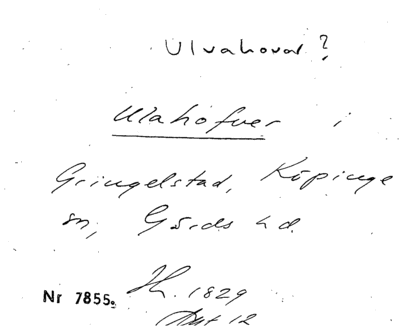 Ulvahovar?
Ulahöfver i
Gringelstad, Köpinge
sn, Gärds hd.
1829
Nr 7855.
12